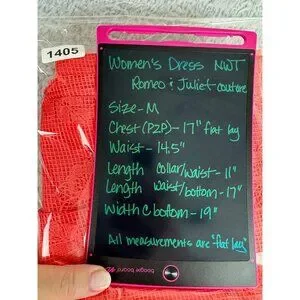 1405
Women's Dress NWT
Romeo & Juliet couture
Size - M
Chest (P2P) - 17" flat lay
Waist - 14.5"
Length collar/waist - 11"
Length waist/bottom - 17"
Width @ bottom - 19"
All measurements are "flat lay"
boogie board